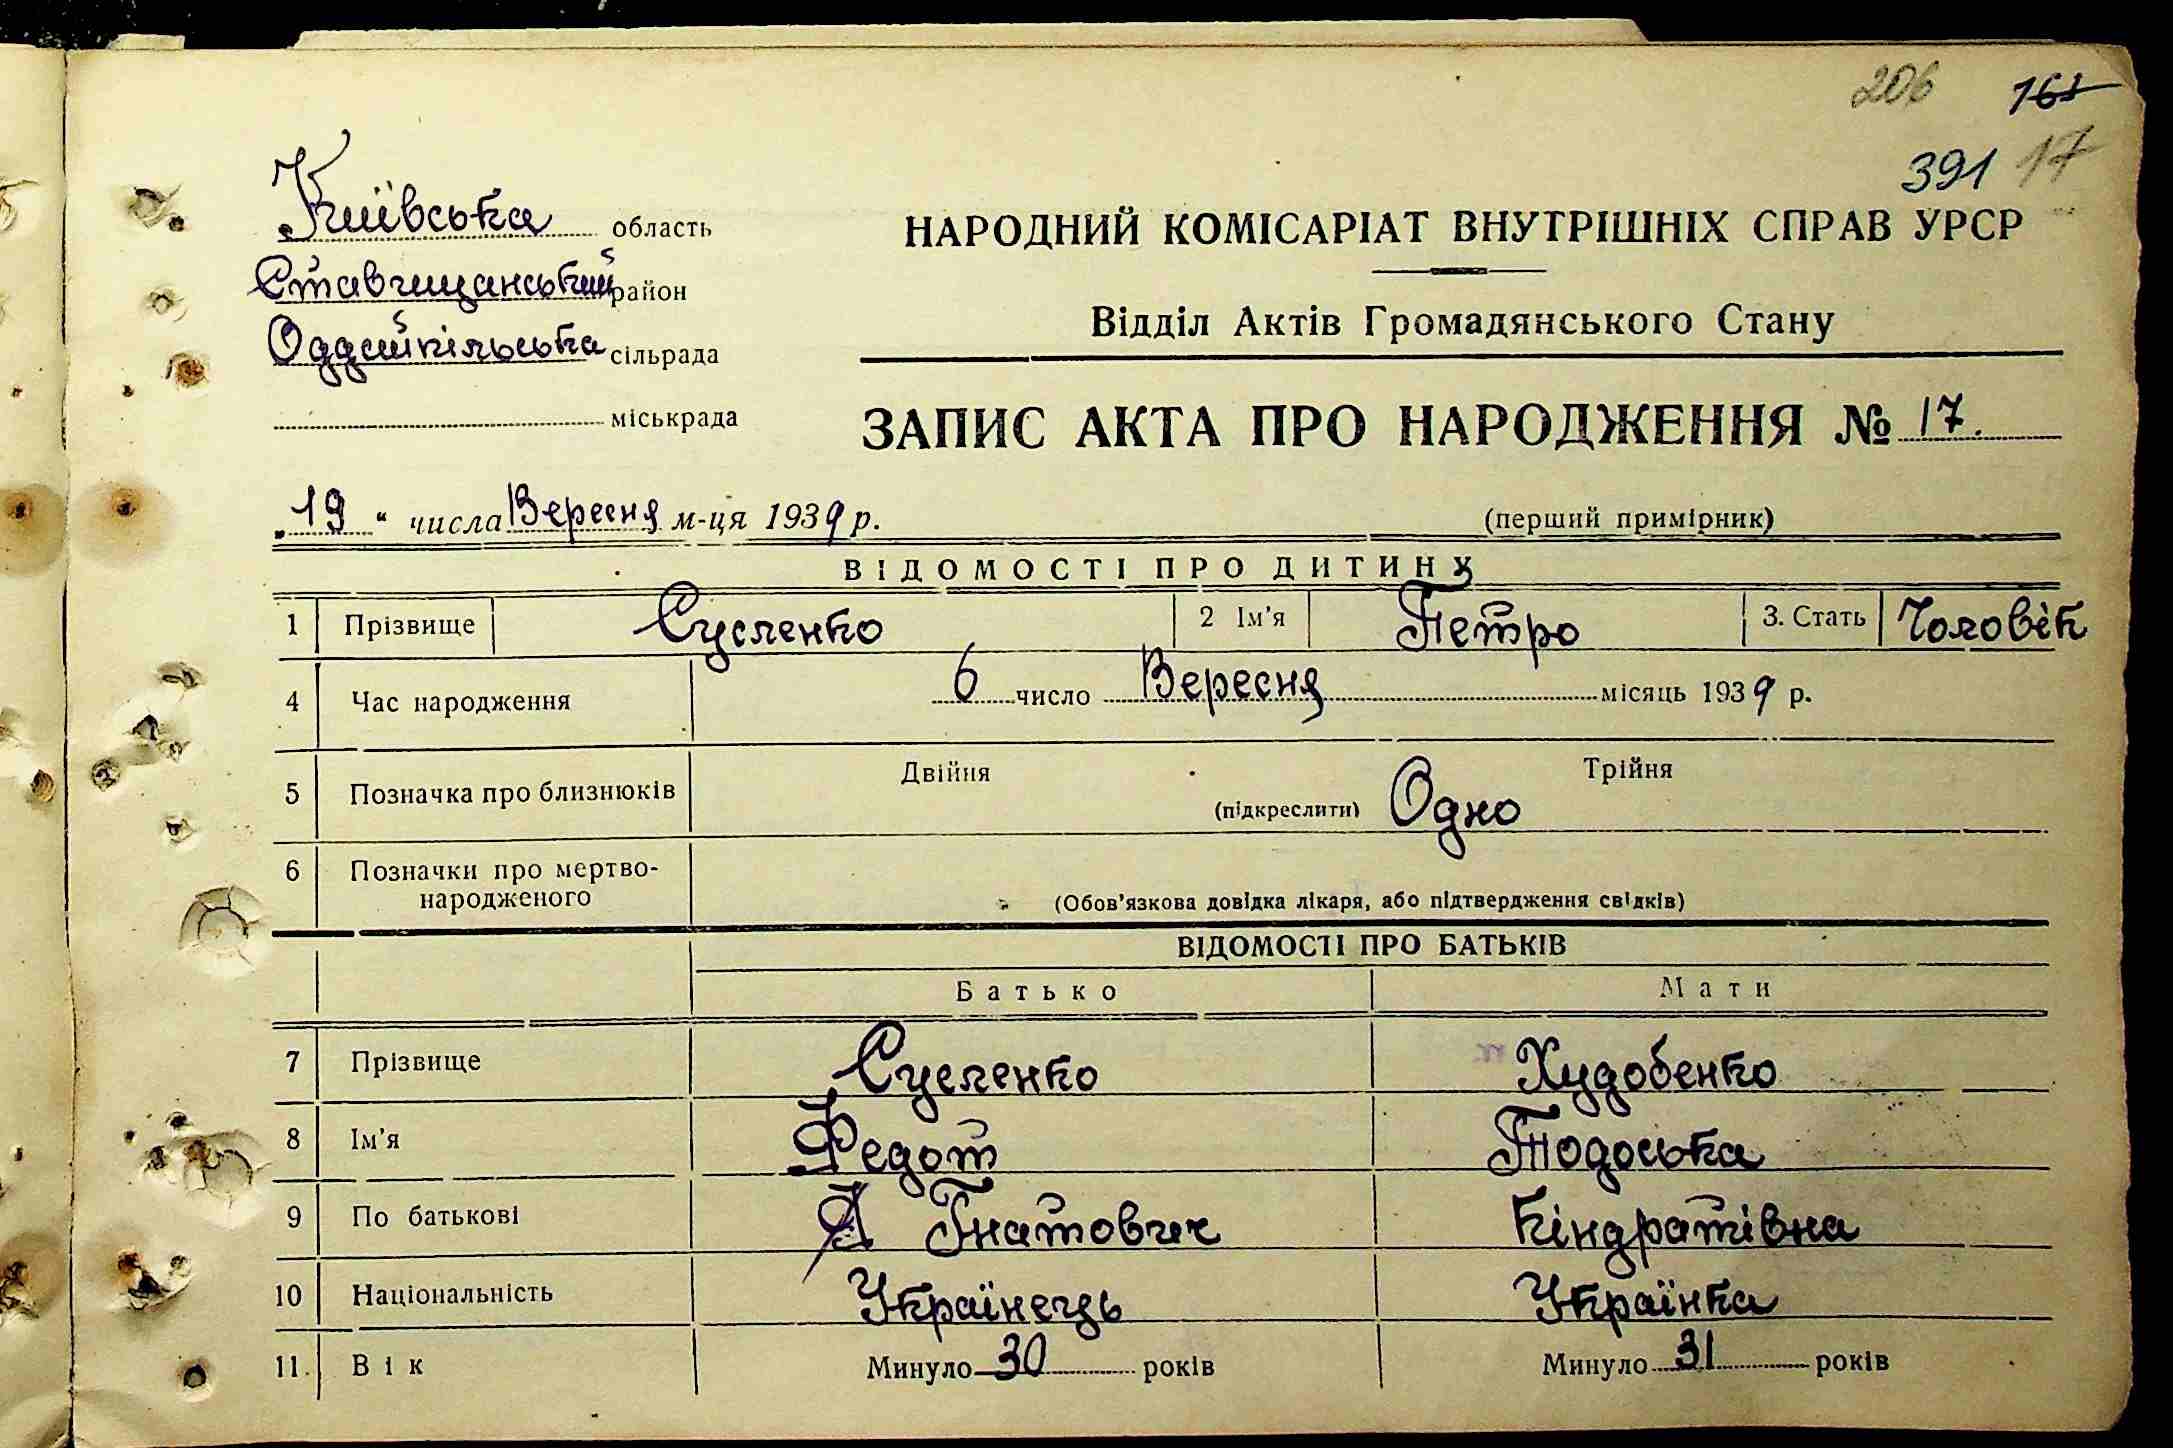 206 161
391 17
Київська область
Ставищанський район
Оддайпільська сільрада
міськрада
НАРОДНИЙ КОМІСАРІАТ ВНУТРІШНІХ СПРАВ УРСР
Відділ Актів Громадянського Стану
ЗАПИС АКТА ПРО НАРОДЖЕННЯ № 17.
„19“ числа Вересня м-ця 1939 р.
(перший примірник)
ВІДОМОСТІ ПРО ДИТИНУ
1 Прізвище Сусленко 2 Ім'я Петро 3. Стать Чоловік
4 Час народження 6 число Вересня місяць 1939 р.
5 Позначка про близнюків Двійня (підкреслити) Одно Трійня
6 Позначки про мертво-
народженого (Обов'язкова довідка лікаря, або підтвердження свідків)
ВІДОМОСТІ ПРО БАТЬКІВ
Батько Мати
7 Прізвище Сусленко Худобенко
8 Ім'я Федот Тодоська
9 По батькові Гнатович Кіндратівна
10 Національність Українець Українка
11. Вік Минуло 30 років Минуло 31 років